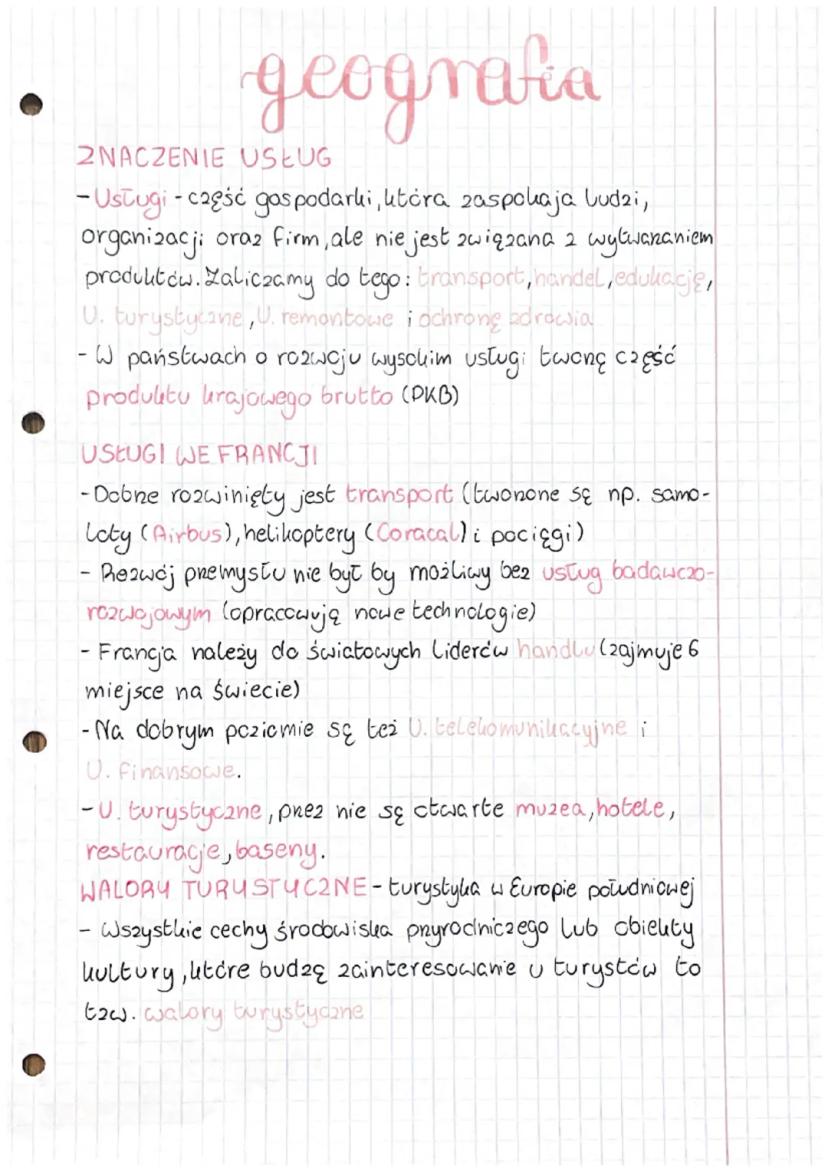 geografia
ZNACZENIE USŁUG
- Usługi - część gospodarki, która zaspokaja ludzi,
organizacji oraz firm, ale nie jest związana z wytwarzaniem
produktów. Zaliczamy do tego: transport, handel, edukację,
U. turystyczne, U. remontowe i ochronę zdrowia
- W państwach o rozwoju wysokim usługi tworzą część
produktu krajowego brutto (PKB)
USŁUGI WE FRANCJI
- Dobrze rozwinięty jest transport (tworzone są np. samo-
loty (Airbus), helikoptery (Coracal) i pociągi)
- Rozwój przemysłu nie był by możliwy bez usług badawczo-
rozwojowym (opracowują nowe technologie)
- Francja należy do światowych liderów handlu (zajmuje 6
miejsce na świecie)
- Na dobrym poziomie są też U. telekomunikacyjne i
U. finansowe.
- U. turystyczne, przez nie są otwarte muzea, hotele,
restauracje, baseny.
WALORY TURYSTYCZNE - turystyka w Europie południowej
- Wszystkie cechy środowiska przyrodniczego lub obiekty
kultury, które budzą zainteresowanie u turystów to
tzw. walory turystyczne